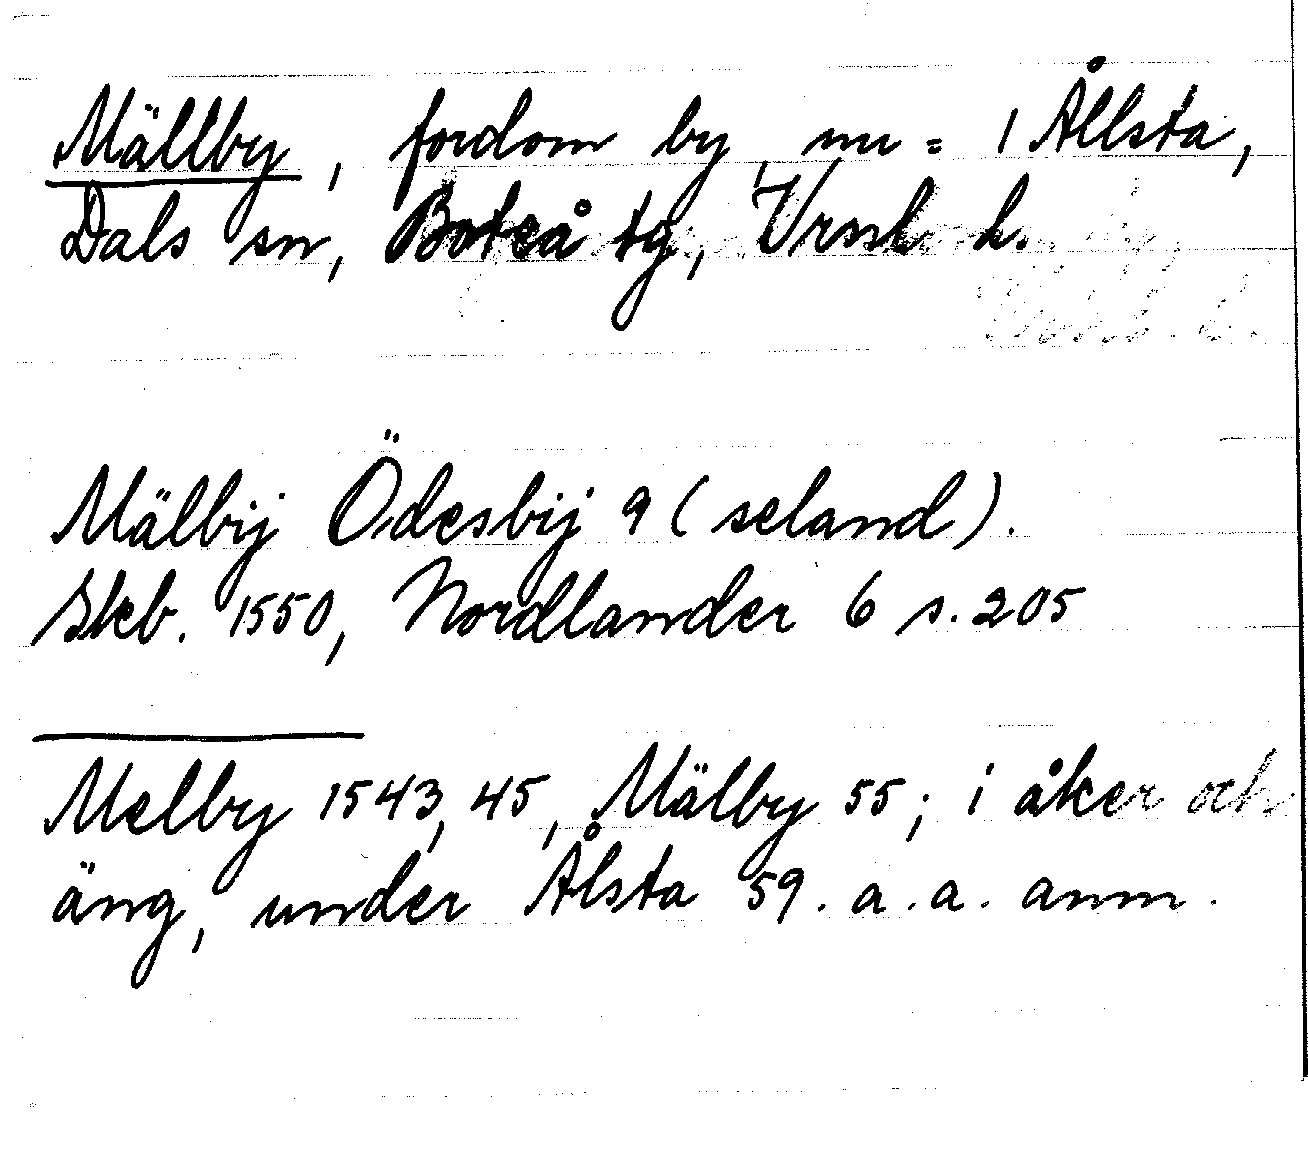 Mällby, fordom by, nu = i Ållsta,
Dals sn, Boteå tg, Vrnl. l.
Mälbij Ödesbij 9 (seland).
Skb. 1550, Nordlander 6 s. 205
Melby 1543, 45, Mälby 55; i åker och
äng, under Ålsta 59. a. a. anm.